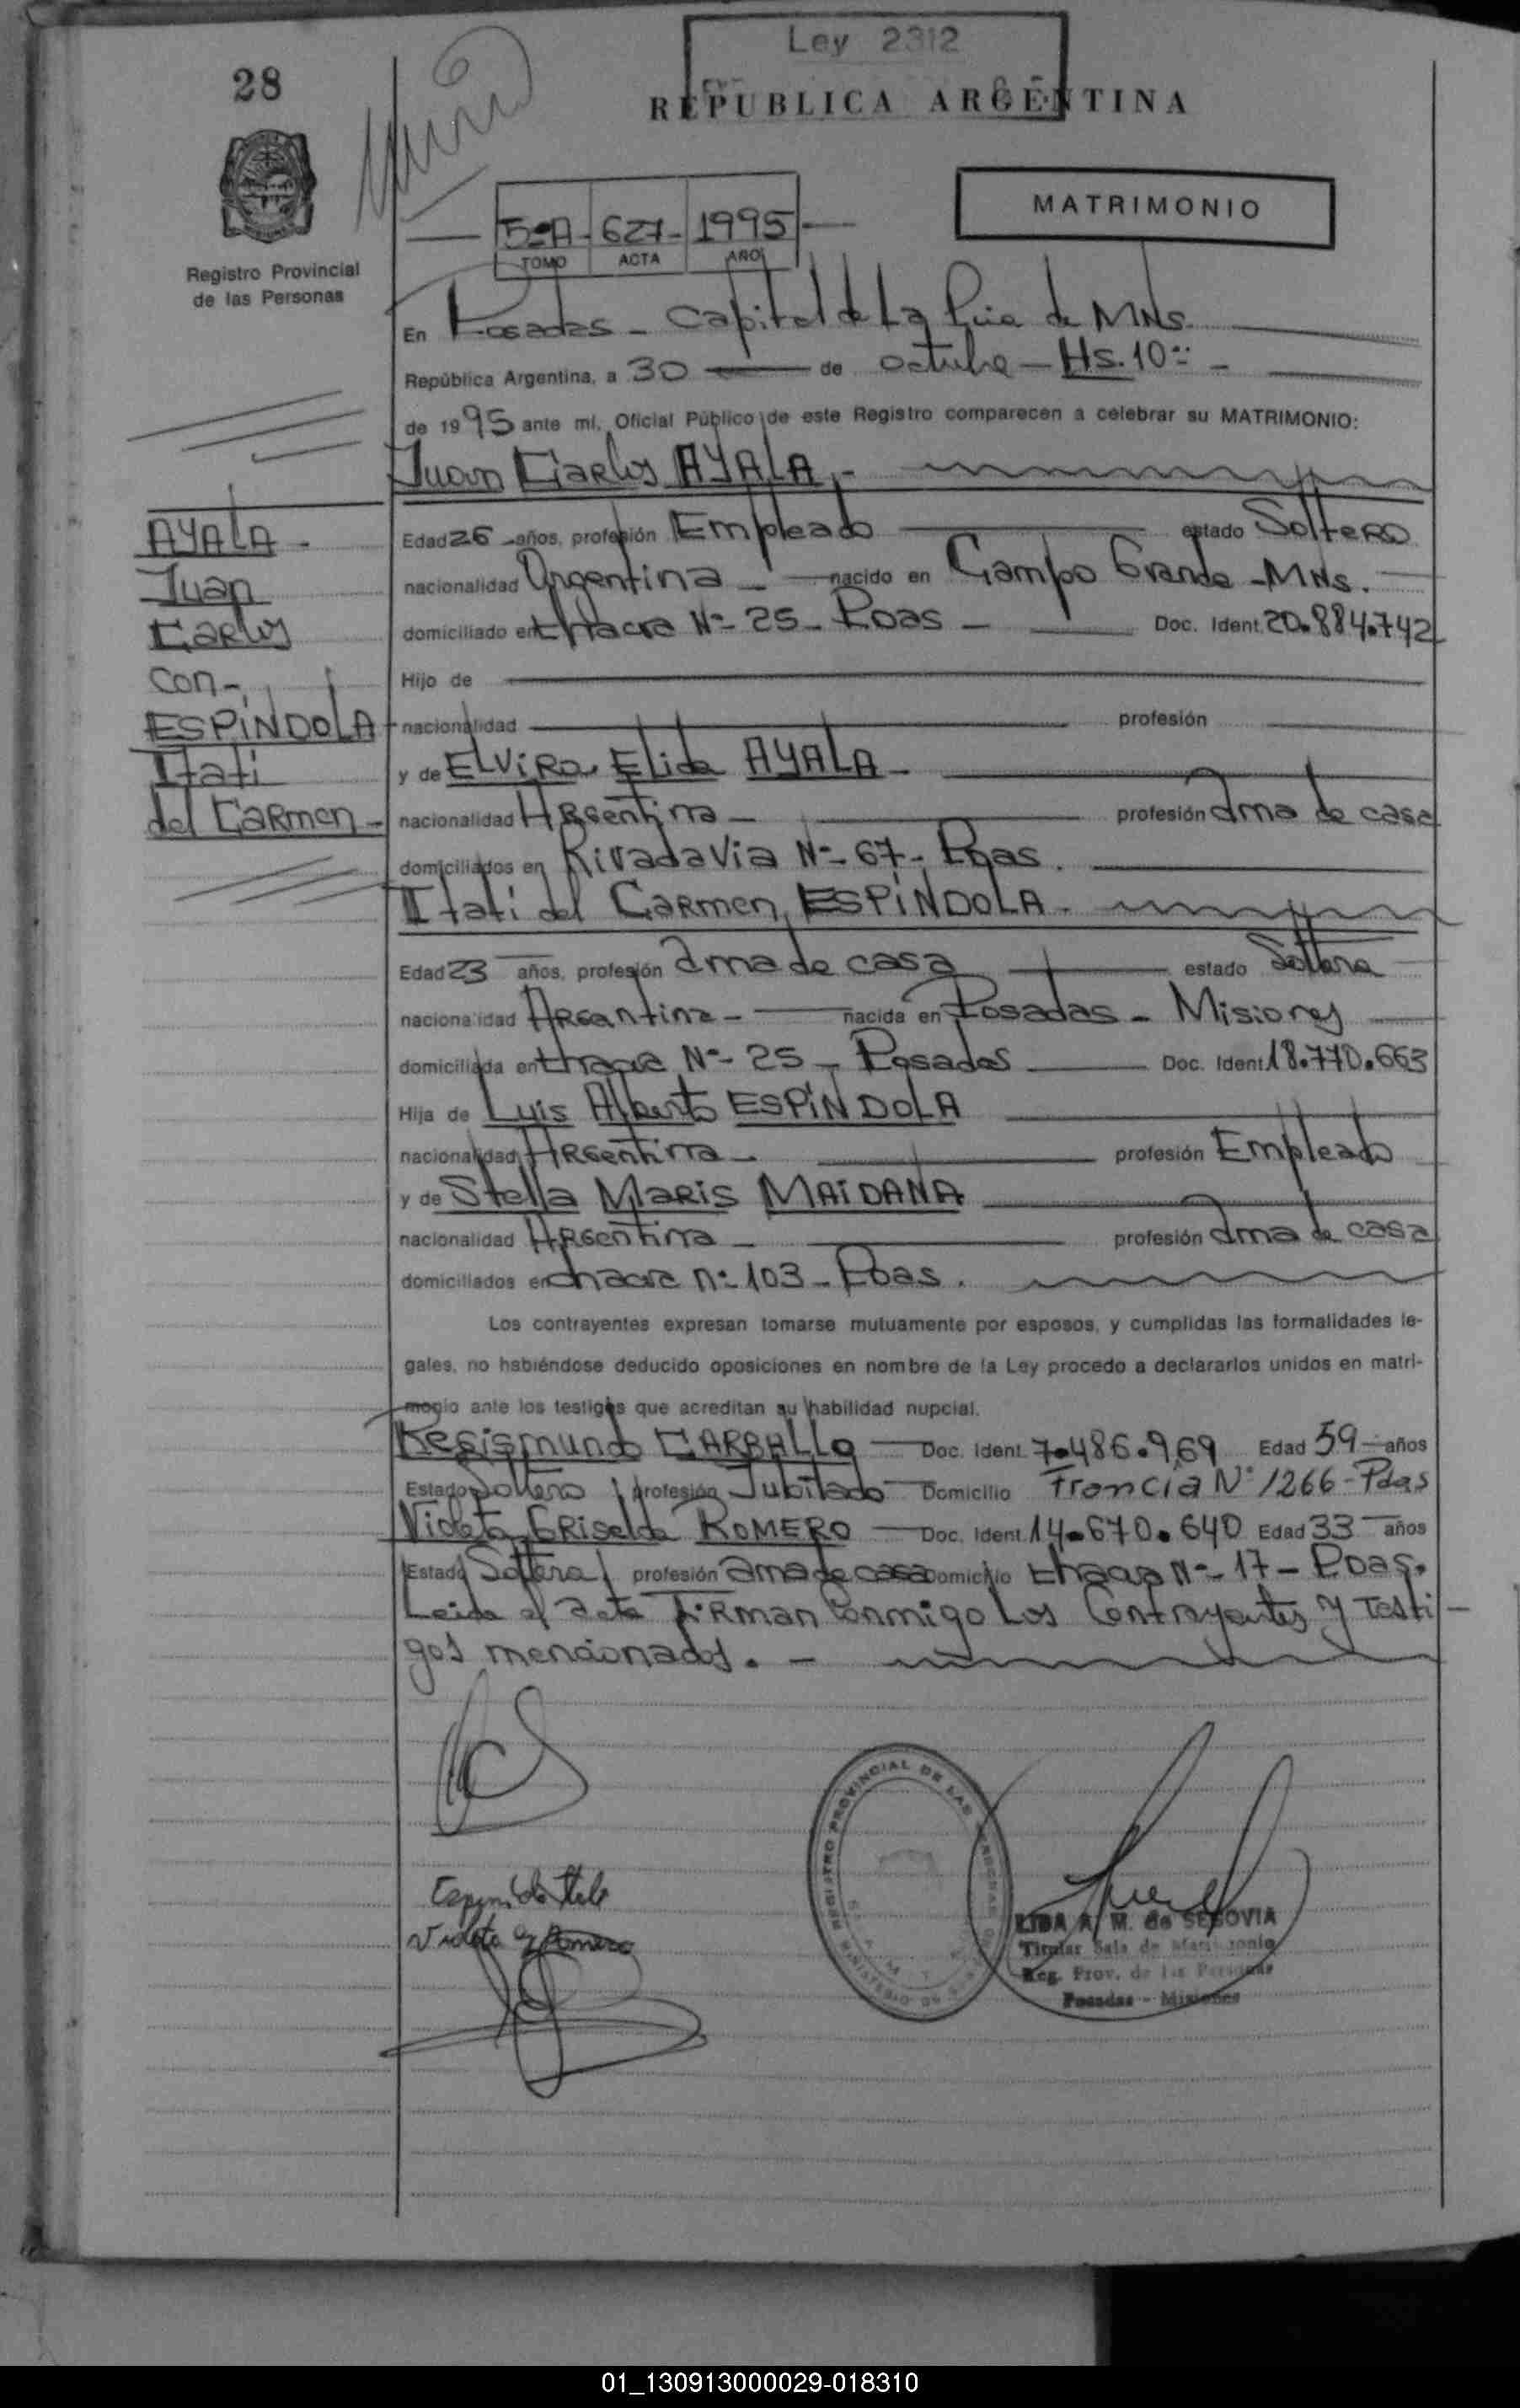 Ley 2312
28
REPUBLICA ARGENTINA
MATRIMONIO
5ºA - 627 - 1995
TOMO ACTA AÑO
Registro Provincial
de las Personas
En Posadas - Capital de La Pcia de MNs.
República Argentina, a 30 de octubre - Hs. 10
de 1995 ante mí, Oficial Público de este Registro comparecen a celebrar su MATRIMONIO:
Juan Carlos AYALA.-
Edad 26 años, profesión Empleado estado Soltero
nacionalidad Argentina - nacido en Campo Grande - MNs.
domiciliado en Chacra Nº 25 - Pdas - Doc. Ident. 20.884.742
Hijo de
nacionalidad profesión
y de ELVIRA Elida AYALA -
nacionalidad Argentina - profesión ama de casa
domiciliados en Rivadavia Nº 67 - Pdas.
Itatí del Carmen ESPÍNDOLA -
Edad 23 años, profesión ama de casa estado Soltera
nacionalidad Argentina - nacida en Posadas - Misiones
domiciliada en Chacra Nº 25 - Posadas Doc. Ident 18.770.663
Hija de Luis Alberto ESPÍNDOLA
nacionalidad Argentina - profesión Empleado
y de Stella Maris MAIDANA
nacionalidad Argentina - profesión ama de casa
domiciliados en chacra nº 103 - Pdas.
AYALA -
Juan
Carlos
con -
ESPÍNDOLA
Itatí
del Carmen -
Los contrayentes expresan tomarse mutuamente por esposos, y cumplidas las formalidades le-
gales, no habiéndose deducido oposiciones en nombre de la Ley procedo a declararlos unidos en matri-
monio ante los testigos que acreditan su habilidad nupcial.
Regismundo CARBALLO Doc. Ident. 7.486.969 Edad 59 años
Estado Soltero profesión Jubilado Domicilio Francia Nº 1266 - Pdas
Violeta Griselda ROMERO Doc. Ident. 14.670.640 Edad 33 años
Estado Soltera profesión ama de casa Domicilio Chacra Nº 17 - Pdas.
Leída el acta firman conmigo Los Contrayentes y Testi-
gos mencionados. -
REGISTRO PROVINCIAL DE LAS PERSONAS
MINISTERIO DE
Violeta G Romero
LIDA A. M. de SEGOVIA
Titular Sala de Matrimonio
Reg. Prov. de las Personas
Posadas - Misiones
01_130913000029-018310